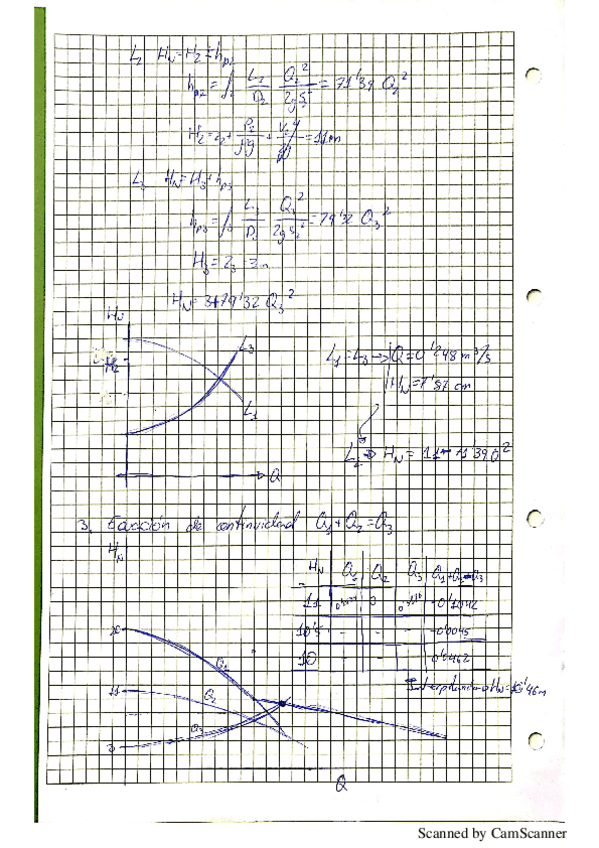 L₂ H_N = H₂ + h_p₂
h_p₂ = f₂ L₂/D₂ Q₂²/2gS₂² = 71'39 Q₂²
H₂ = z₂ + P₂/ρg + V₂²/2g = 11m
L₃ H_N = H₃ + h_p₃
h_p₃ = f₃ L₃/D₃ Q₃²/2gS₃² = 79'32 Q₃²
H₃ = z₃ = 3m
H_N = 3 + 79'32 Q₃²
H_N
H₂
L₃
L₁
Q
L₁ = L₃ → Q = 0'248 m³/s
H_N = 7'87 cm
L₂ → H_N = 11 - 71'39 Q²
3. Ecuación de continuidad Q₁ + Q₂ = Q₃
H_N
H_N Q₁ Q₂ Q₃ Q₁+Q₂-Q₃
11 0 -0'1042
10'5 - - - -0'0045
10 - - - 0'0462
Interpolando H_N = 10'46m
Q₁
11
Q₂
3
Q₃
Q
Scanned by CamScanner